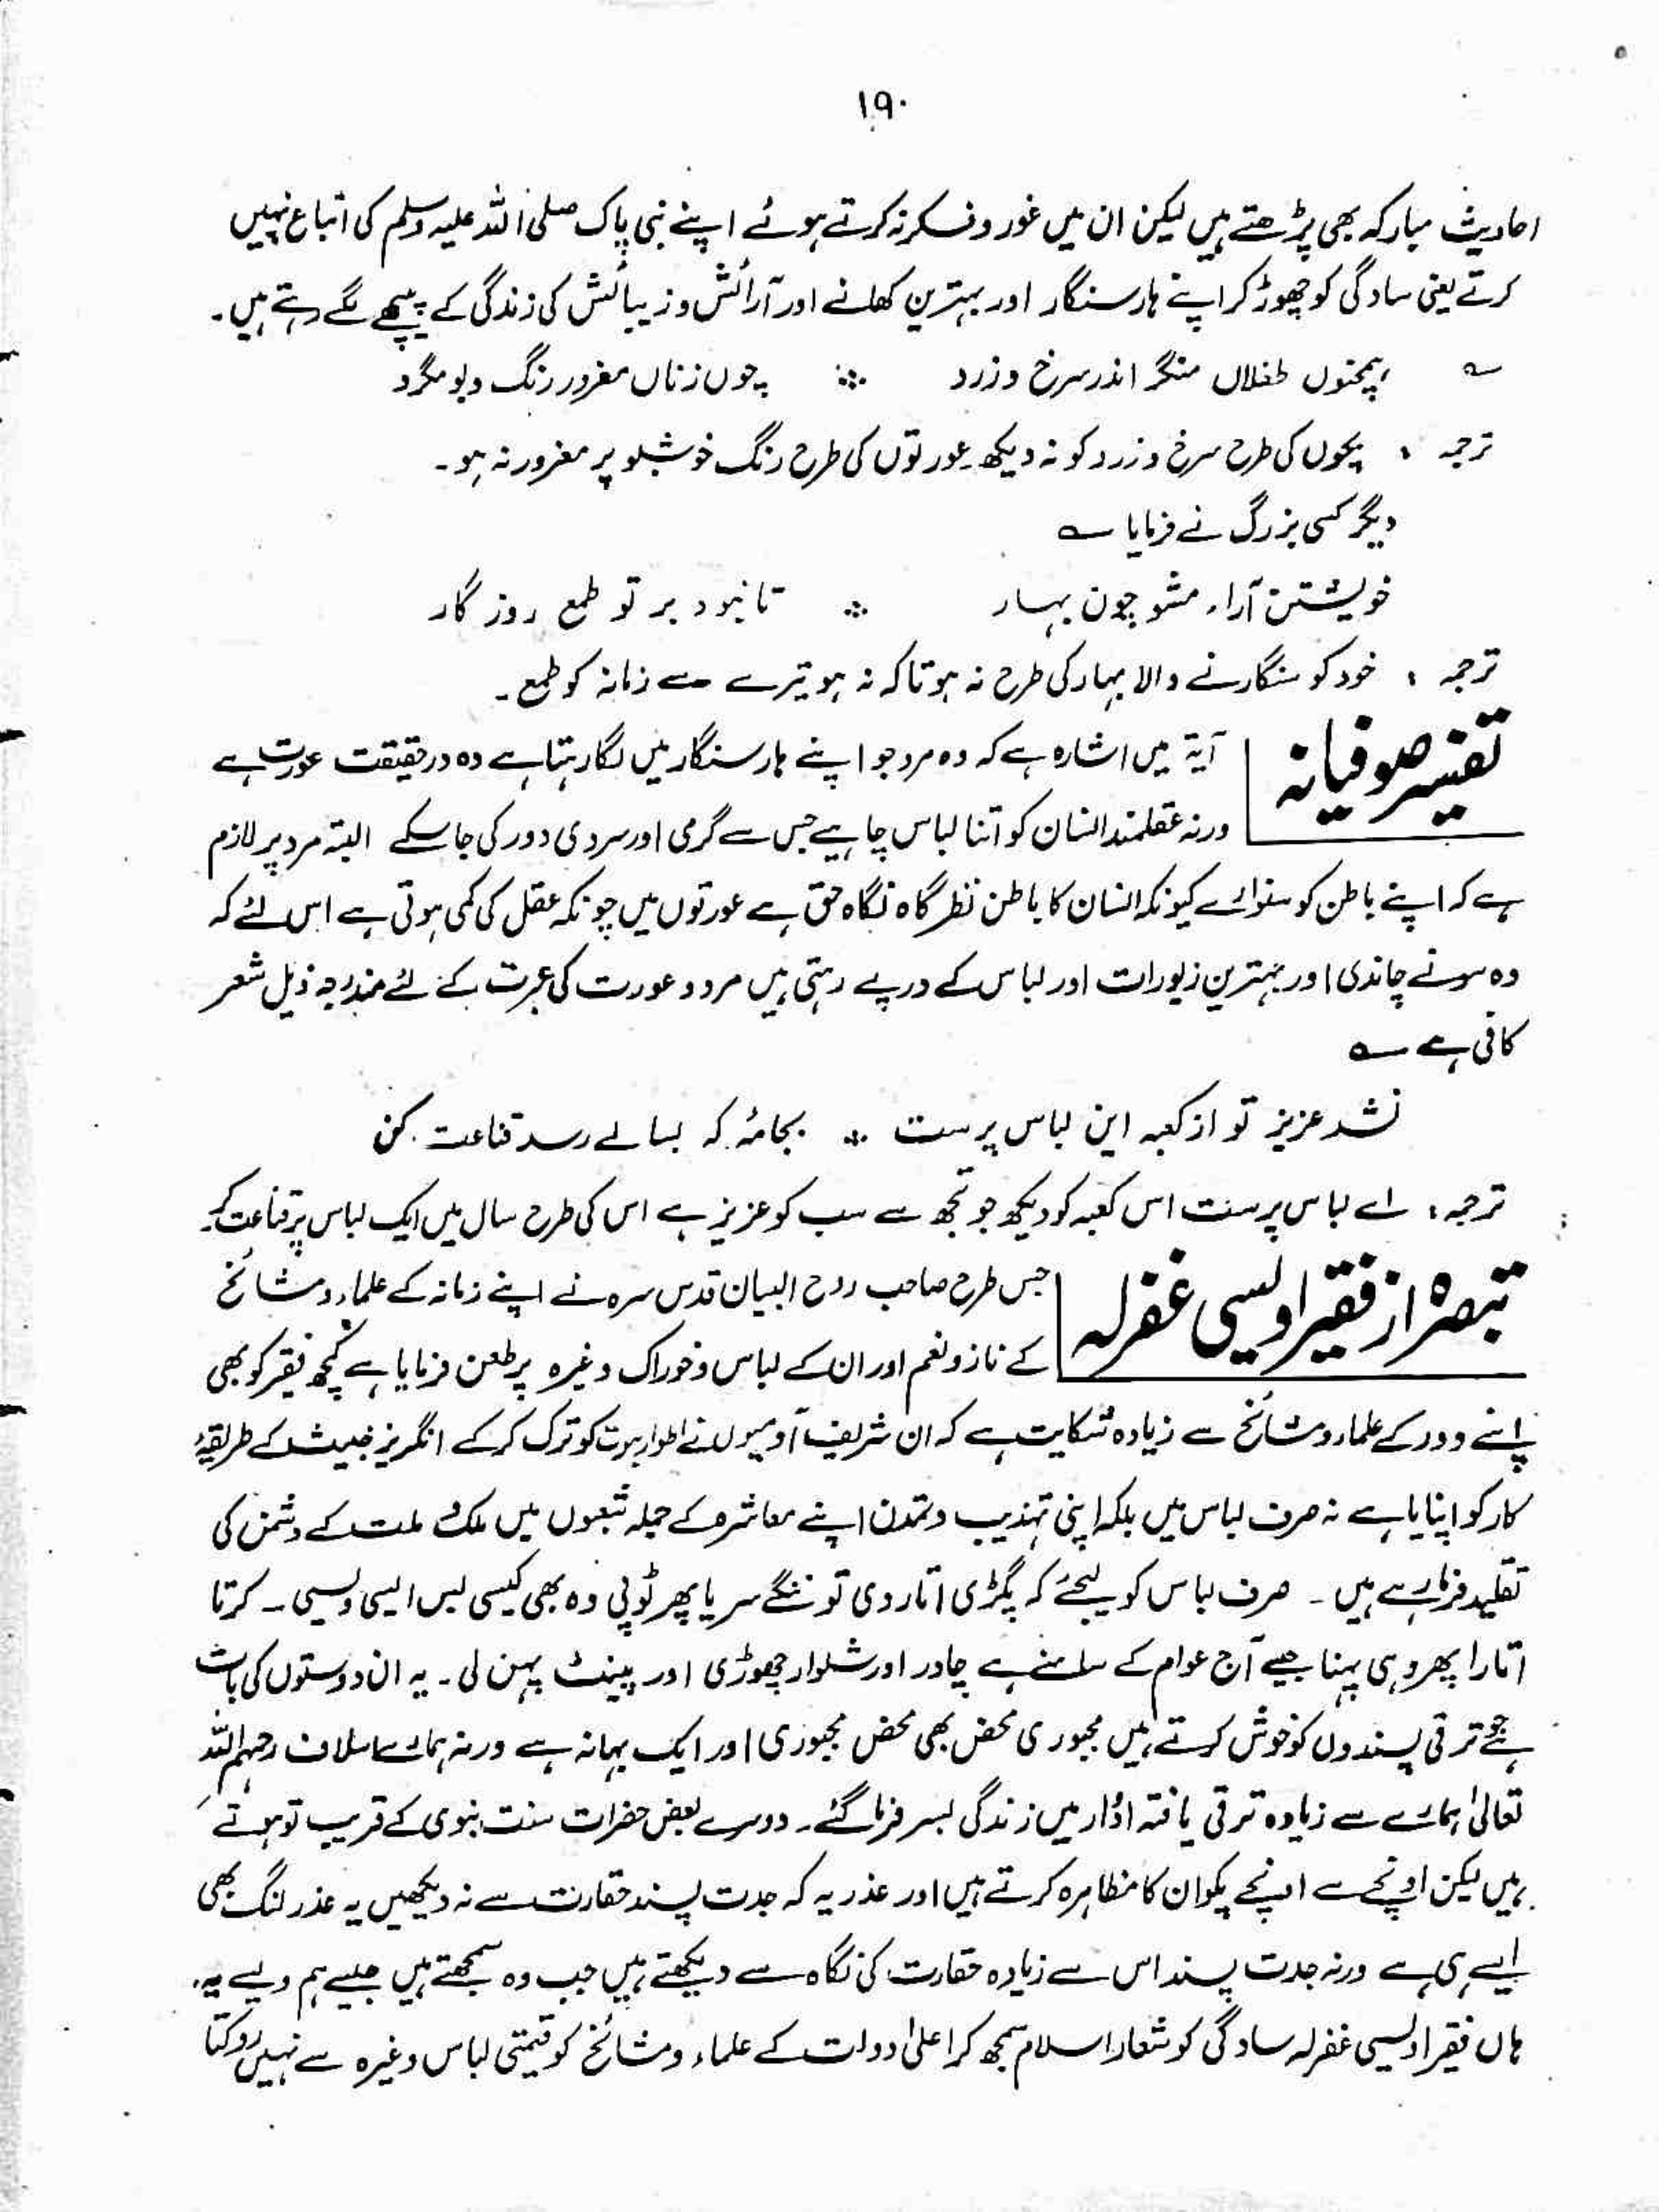 ۱۹۰
احادیث مبارکہ بھی پڑھتے ہیں لیکن ان میں غور و فکر نہ کرتے ہوئے اپنے نبی پاک صلی اللہ علیہ وسلم کی اتباع نہیں
کرتے یعنی سادگی کو چھوڑ کر اپنے ہار سنگار اور بہترین کھانے اور آرائش و زیبائش کی زندگی کے پیچھے لگے رہتے ہیں۔
؎ ہمچوں طفلاں منگر اندر سرخ و زرد ؞ چوں زناں مغرور رنگ و بو مگرد
ترجمہ ، بچوں کی طرح سرخ و زرد کو نہ دیکھ عورتوں کی طرح رنگ خوشبو پر مغرور نہ ہو۔
دیگر کسی بزرگ نے فرمایا ؎
خویشتن آراء مشو چون بہار ؞ تا نبود بر تو طمع روزگار
ترجمہ ، خود کو سنگارنے والا بہار کی طرح نہ ہو تاکہ نہ ہو تیرے سے زمانہ کو طمع۔
تفسیر صوفیانہ
آیۃ میں اشارہ ہے کہ وہ مرد جو اپنے ہار سنگار میں لگا رہتا ہے وہ درحقیقت عورت ہے
ورنہ عقلمند انسان کو اتنا لباس چاہیے جس سے گرمی اور سردی دور کی جا سکے البتہ مرد پر لازم
ہے کہ اپنے باطن کو سنوارے کیونکہ انسان کا باطن نظر گاہ نگاہ حق ہے عورتوں میں چونکہ عقل کی کمی ہوتی ہے اس لئے کہ
وہ سونے چاندی اور بہترین زیورات اور لباس کے درپے رہتی ہیں مرد و عورت کی عبرت کے لئے مندرجہ ذیل شعر
کافی ہے ؎
نشد عزیز تو از کعبہ این لباس پرست ؞ بجامۂ کہ بسالے رسد قناعت کن
ترجمہ ، اے لباس پرست اس کعبہ کو دیکھ جو تجھ سے سب کو عزیز ہے اس کی طرح سال میں ایک لباس پر قناعت کر۔
تبصرہ از فقیر اویسی غفرلہ
جس طرح صاحب روح البیان قدس سرہ نے اپنے زمانہ کے علماء و مشائخ
کے ناز و نعم اور ان کے لباس و خوراک وغیرہ پر طعن فرمایا ہے کچھ فقیر کو بھی
اپنے دور کے علماء و مشائخ سے زیادہ شکایت ہے کہ ان شریف آدمیوں نے اطوار نبوت کو ترک کر کے انگریز خبیث کے طریقۂ
کار کو اپنایا ہے نہ صرف لباس میں بلکہ اپنی تہذیب و تمدن اپنے معاشرہ کے جملہ شعبوں میں ملک ملت کے دشمن کی
تقلید فرما رہے ہیں ۔ صرف لباس کو لیجئے کہ پگڑی اتار دی تو ننگے سر یا پھر ٹوپی وہ بھی کیسی بس ایسی ویسی ۔ کرتا
اتارا پھر وہی پہنا جسے آج عوام کے سامنے ہے چادر اور شلوار چھوڑی اور پینٹ پہن لی۔ یہ ان دوستوں کی بات
ہے جو ترقی پسندوں کو خوش کرتے ہیں مجبوری محض بھی محض مجبوری اور ایک بہانہ ہے ورنہ ہمارے اسلاف رحمہم اللہ
تعالیٰ ہمارے سے زیادہ ترقی یافتہ ادوار میں زندگی بسر فرما گئے۔ دوسرے بعض حضرات سنت نبوی کے قریب تو ہوتے
ہیں لیکن اونچے سے اونچے پکوان کا مظاہرہ کرتے ہیں اور عذر یہ کہ جدت پسند حقارت سے نہ دیکھیں یہ عذر لنگ بھی
ایسے ہی ہے ورنہ جدت پسند اس سے زیادہ حقارت کی نگاہ سے دیکھتے ہیں جب وہ سمجھتے ہیں جیسے ہم ویسے یہ،
ہاں فقیر اویسی غفرلہ سادگی کو شعار اسلام سمجھ کر اعلیٰ دولت کے علماء و مشائخ کو قیمتی لباس وغیرہ سے نہیں روکتا